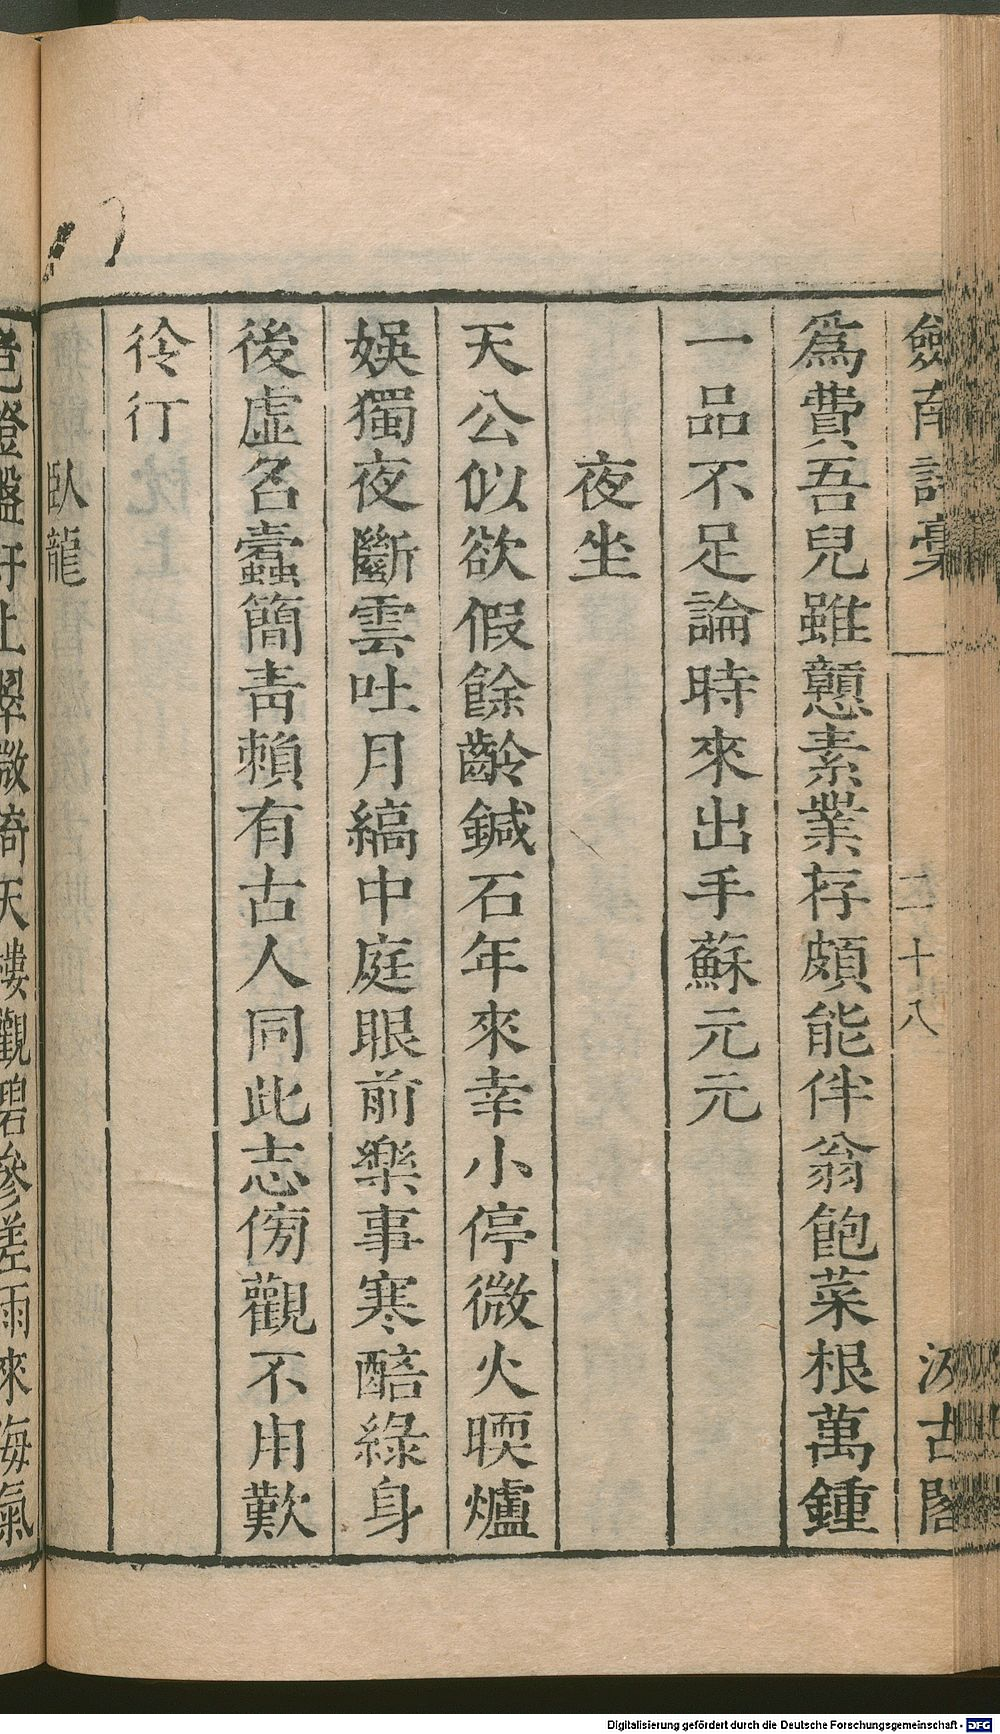 劔南詩稾 二十八 汲古閣
爲費吾兒雖戇素業存頗能伴翁飽菜根萬鍾
一品不足論時來出手蘇元元
夜坐
天公似欲假餘齡鍼石年來幸小停微火暝爐
娛獨夜斷雲吐月縞中庭眼前樂事寒醅綠身
後虛名蠹簡靑賴有古人同此志傍觀不用歎
彾仃
臥龍
磴盤紆上翠微倚天樓觀碧參差雨來海氣
Digitalisierung gefördert durch die Deutsche Forschungsgemeinschaft - DFG